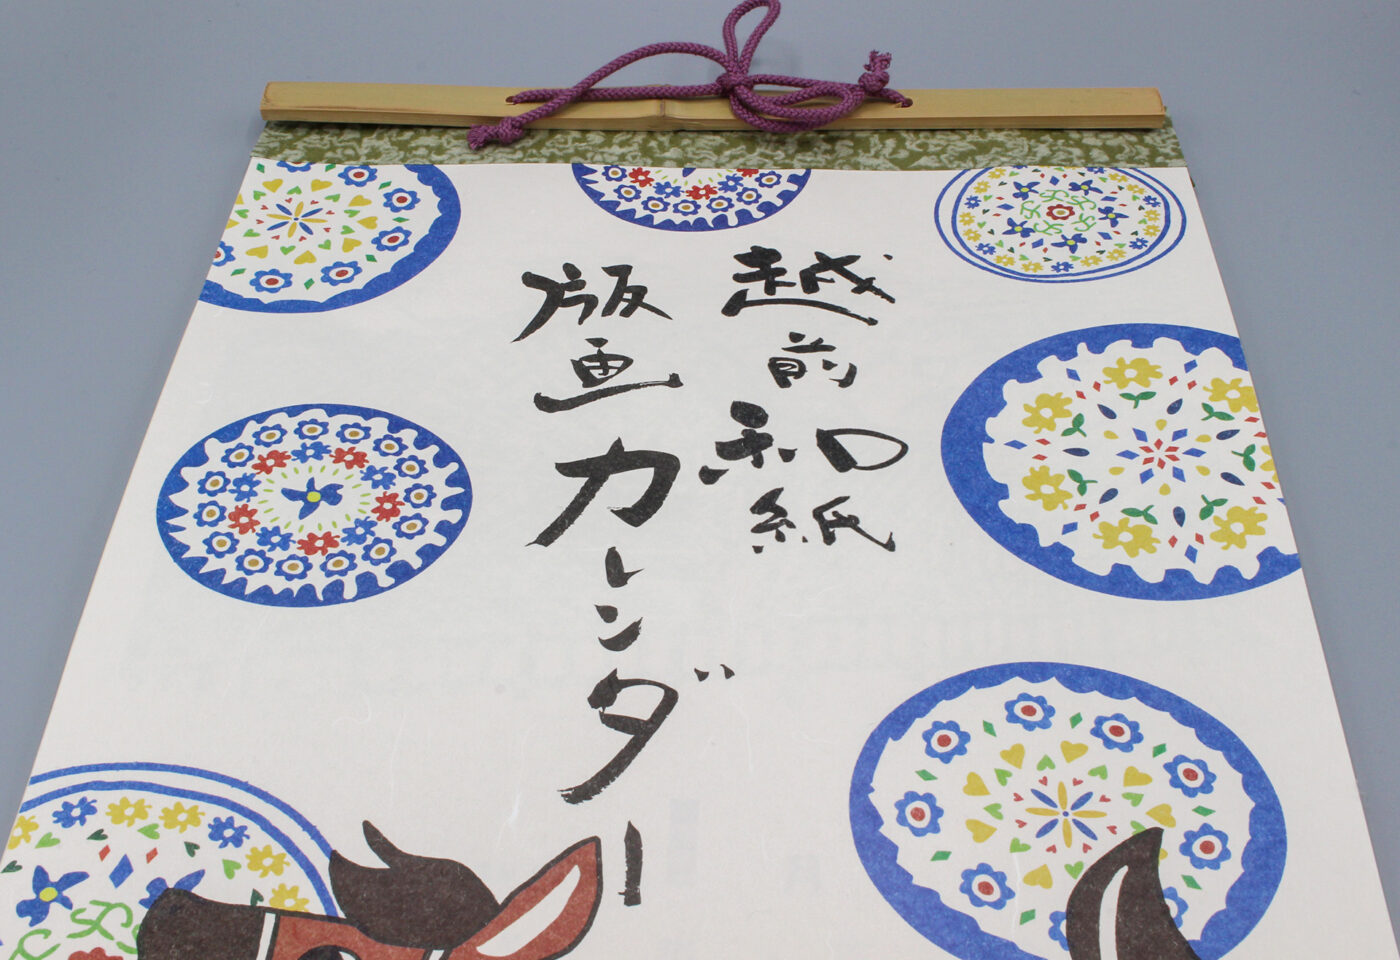 越前和紙
版画カレンダー